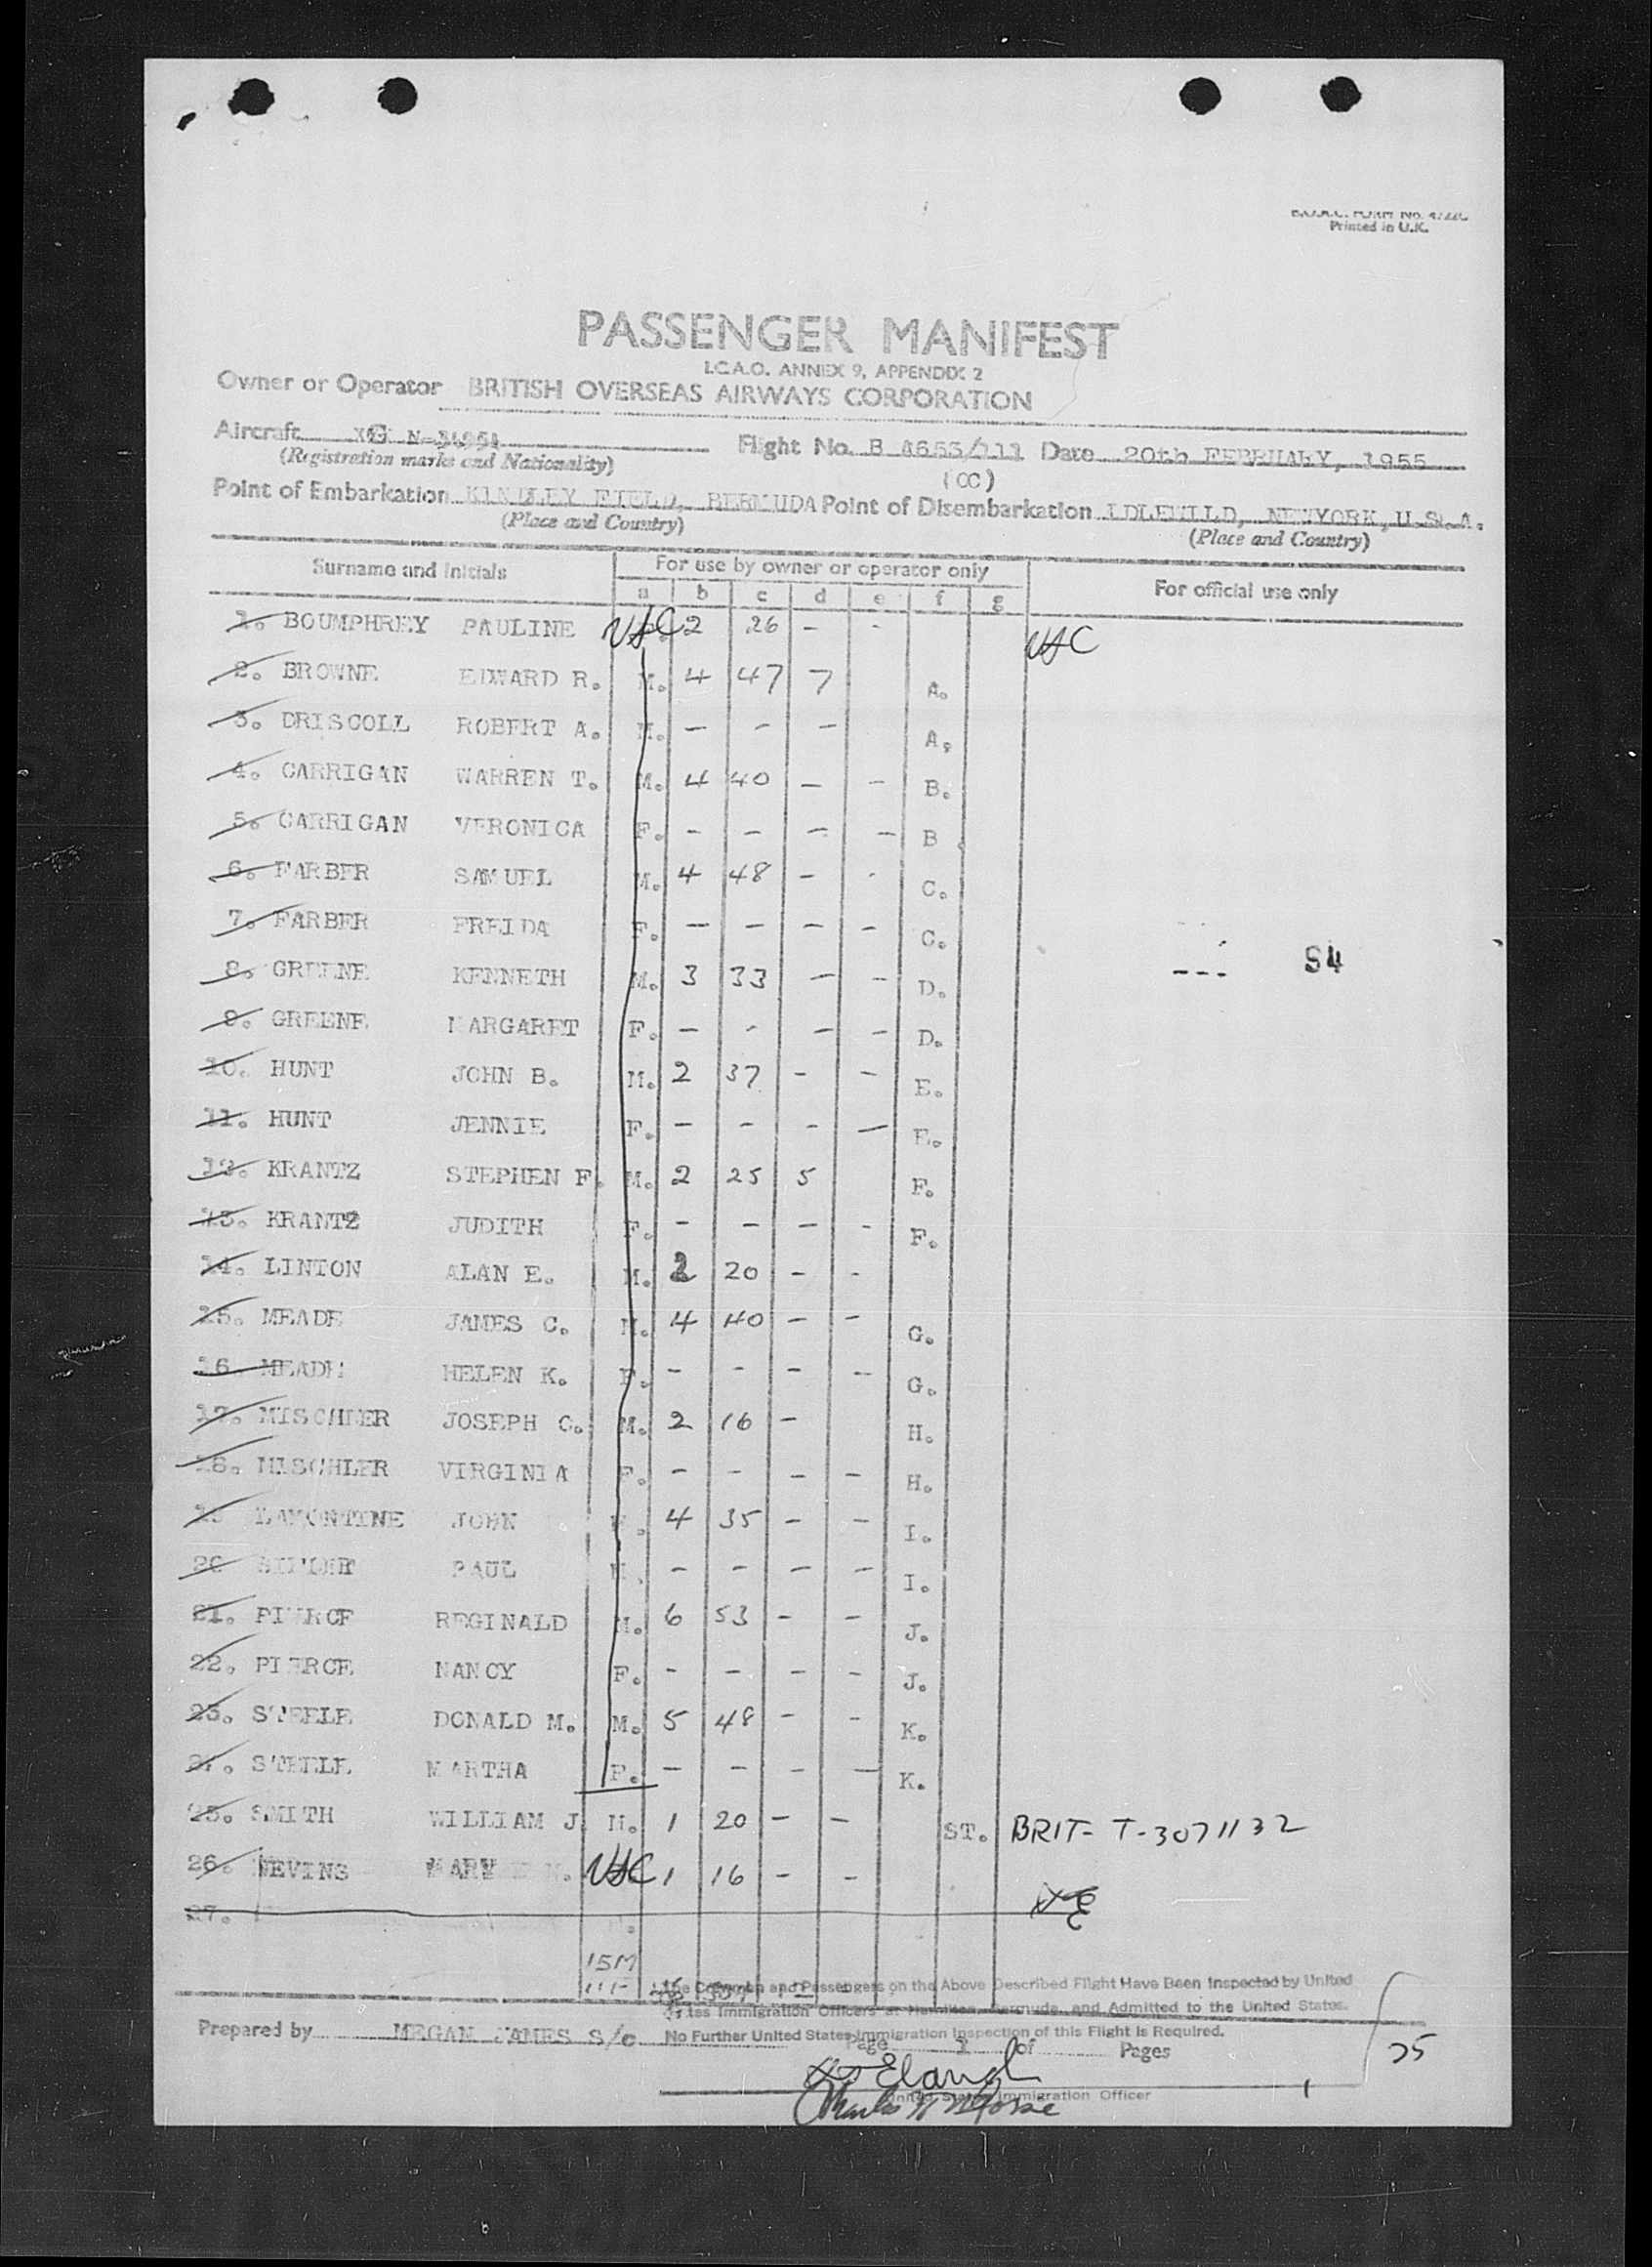 B.O.A.C. FORM No.
Printed in U.K.
PASSENGER MANIFEST
I.C.A.O. ANNEX 9, APPENDIX 2
Owner or Operator BRITISH OVERSEAS AIRWAYS CORPORATION
Aircraft G N-
(Registration marks and Nationality)
Flight No. B A653/111 Date 20th FEBRUARY, 1955
(CC)
Point of Embarkation KINDLEY FIELD, BERMUDA Point of Disembarkation IDLEWILD, NEWYORK, U.S.A.
(Place and Country) (Place and Country)
Surname and Initials For use by owner or operator only For official use only
a b c d e f g
1. BOUMPHREY PAULINE USC 2 26 - - USC
2. BROWNE EDWARD R. M. 4 47 7 A.
3. DRISCOLL ROBERT A. M. - - - A.
4. CARRIGAN WARREN T. M. 4 40 - - B.
5. CARRIGAN VERONICA F. - - - - B
6. FARBER SAMUEL M. 4 48 - - C.
7. FARBER FREIDA F. - - - - C.
--- S4
8. GREENE KENNETH M. 3 33 - - D.
9. GREENE MARGARET F. - - - - D.
10. HUNT JOHN B. M. 2 37 - - E.
11. HUNT JENNIE F. - - - - E.
12. KRANTZ STEPHEN F. M. 2 25 5 F.
13. KRANTZ JUDITH F. - - - - F.
14. LINTON ALAN E. M. 2 20 - -
15. MEADE JAMES C. M. 4 40 - - G.
16 MEADE HELEN K. F. - - - - G.
17. MISCHLER JOSEPH C. M. 2 16 - H.
18. MISCHLER VIRGINIA F. - - - - H.
19 JOHN M. 4 35 - - I.
20 PAUL M. - - - - I.
21. PIERCE REGINALD M. 6 53 - - J.
22. PIERCE NANCY F. - - - - J.
23. STEELE DONALD M. M. 5 48 - - K.
24. STEELE MARTHA F. - - - - K.
25. SMITH WILLIAM J. M. 1 20 - - ST. BRIT- T-3071132
26. NEVINS MARY USC 1 16 - -
27.
15M
11F
The Crewmen and Passengers on the Above Described Flight Have Been Inspected by United
States Immigration Officers at Hamilton, Bermuda, and Admitted to the United States.
No Further United States Immigration Inspection of this Flight is Required.
Prepared by MEGAN JAMES S/c Page 1 of Pages
25
United States Immigration Officer